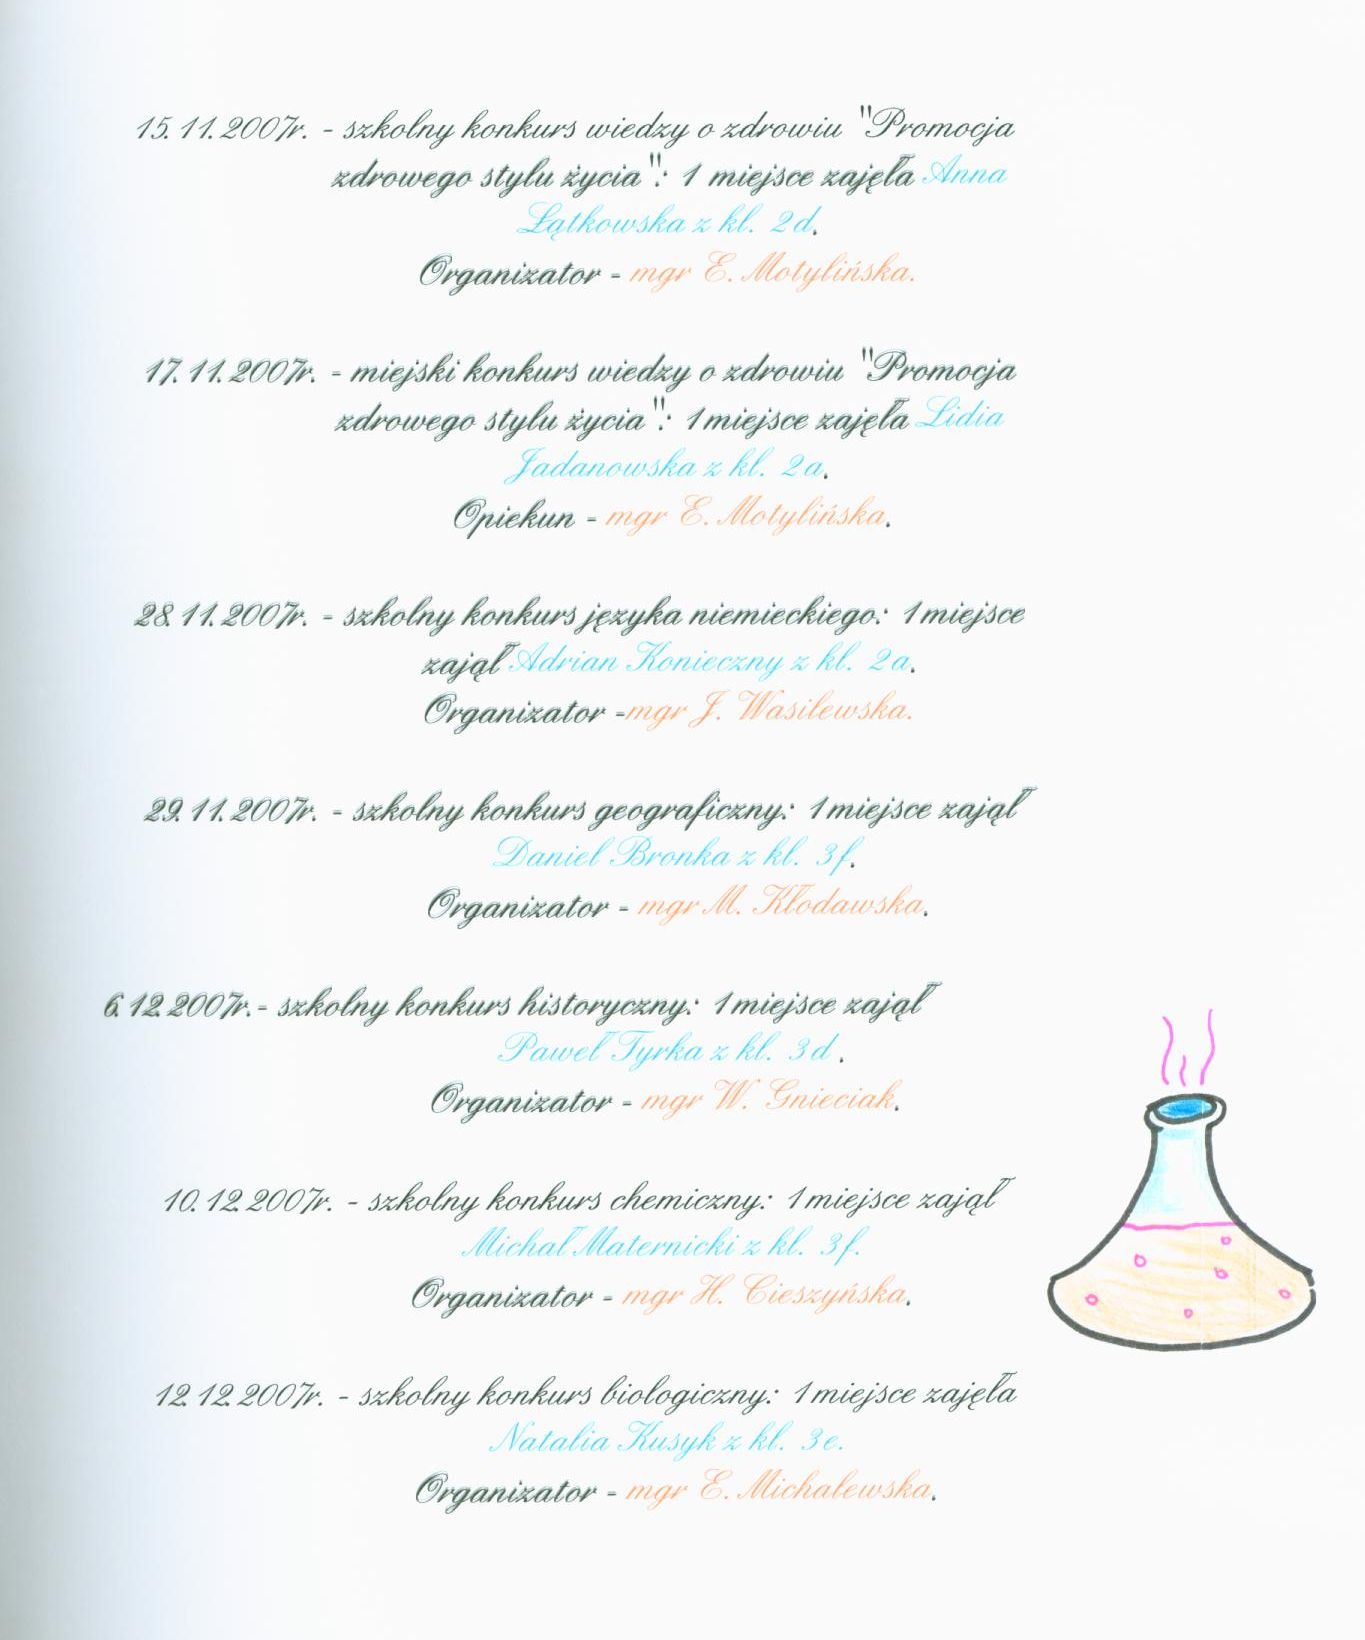 15.11.2007r. - szkolny konkurs wiedzy o zdrowiu "Promocja
zdrowego stylu życia": 1 miejsce zajęła Anna
Łątkowska z kl. 2d.
Organizator - mgr E. Motylińska.
17.11.2007r. - miejski konkurs wiedzy o zdrowiu "Promocja
zdrowego stylu życia": 1 miejsce zajęła Lidia
Jadanowska z kl. 2a.
Opiekun - mgr E. Motylińska.
28.11.2007r. - szkolny konkurs języka niemieckiego: 1 miejsce
zajął Adrian Konieczny z kl. 2a.
Organizator -mgr J. Wasilewska.
29.11.2007r. - szkolny konkurs geograficzny: 1 miejsce zajął
Daniel Bronka z kl. 3f.
Organizator - mgr M. Kłodawska.
6.12.2007r. - szkolny konkurs historyczny: 1 miejsce zajął
Paweł Tyrka z kl. 3d.
Organizator - mgr W. Gnieciak.
10.12.2007r. - szkolny konkurs chemiczny: 1 miejsce zajął
Michał Maternicki z kl. 3f.
Organizator - mgr H. Cieszyńska.
12.12.2007r. - szkolny konkurs biologiczny: 1 miejsce zajęła
Natalia Kusyk z kl. 3e.
Organizator - mgr E. Michalewska.